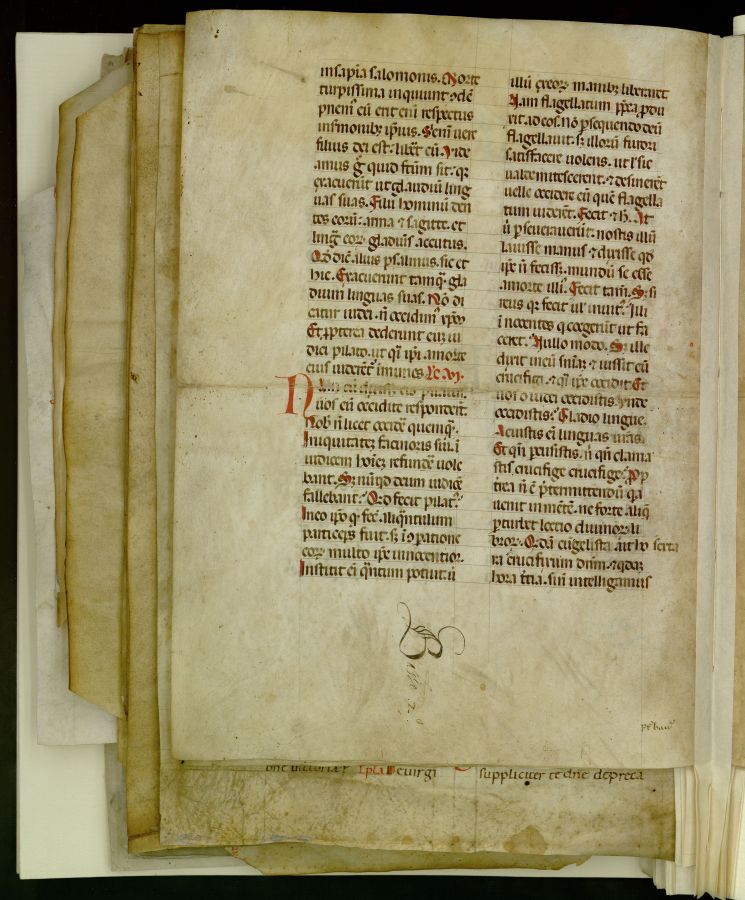 insapīa salomonis. Morte
turpissima inquiunt ⁊dē
pnem̄ eū erit eni respectus
insermonibꝫ ip̄ius. Seni uere
filius dei est. libēt eū. Vide
amus g̊ quid fc̄um sit. qꝛ
exacuerūt ut gladiū ling
uas suas. Filii hominū den
tes eorū: arma ⁊ sagitte. et
ling̅ eoꝝ gladius accutus.
Qd̄ dic̄ alius psalmus. sic et
hic. Exacuerunt tamqꝫ gla
dium linguas suas. Nō di
cant iudei. n̄ occidim᷒ xp̄m
Et ꝓpterea dederunt eū iu
dici pilato. ut q̄i ip̄i amorte
eius uiderēt᷒ imunes. Lc̄. vi.
uos eū occidite responderūt.
Nob̄ n̄ licet occidē quemqꝫ.
Iniquitatē facinoris sui. ī
iudicem hoīeꝫ refundē uole
bant. Sꝫ nūqd deum iudicē
fallebant: Qd̄ fecit pilat᷒.
Ineo ip̄o qꝫ fec̄ aliq̄ntulum
particeps fuit. sꝫ ī ꝯparatione
eoꝝ multo ip̄e innocentior.
Institit ei q̄ntum potuit. ū
illū exeoꝝ manibꝫ liberaret
Nam flagellatum ꝓp̄ea ꝓdu
xit. ad eos. Nō ꝑsequendo deū
flagellauit. sꝫ illorū furori
satisfacere uolens. ut ł sic
ualde mitescerent. ⁊ desinerēt
uelle occidere cū quē flagella
tum uiderēt. Fecit ⁊ h̄. At
ū ꝑseuerauerūt. nostis illū
lauisse manus. ⁊ dixisse qd̄
ip̄e n̄ fecisꝫ. mundū se esse
amorte illi᷒. Fecit tam̄. Sꝫ si
reus qꝛ fecit ul̓ inuit᷒. Illi
innocentes q coegerūt ut fa
ceret. Nullo modo. Sꝫ ille
dixit ineū sn̄iaꝫ ⁊ iussit eū
crucifigi. ⁊ q̄i ip̄e occidit. Et
uos o iudei occidistis. Vnde
occidistis? Gladio lingue.
Acuistis eī linguas ūras.
Et qn̄ ꝑcussistis. ū qn̄ clama
stis crucifige crucifige? Pꝓ
t̄rea n̄ ē p̄termittendū qd̄
uenit inmētē. ne forte aliq̄
ꝑturbet lectio diuinoꝝ li
broꝝ. Qdā eūgelista ait ho serta
ra crucifixum dn̄m. ⁊ qdaꝫ
hora t̄tia. sui intelligamus
pr̄ban᷒
one victoriar ipla evirgi
suppliciter te dn̄e depreca